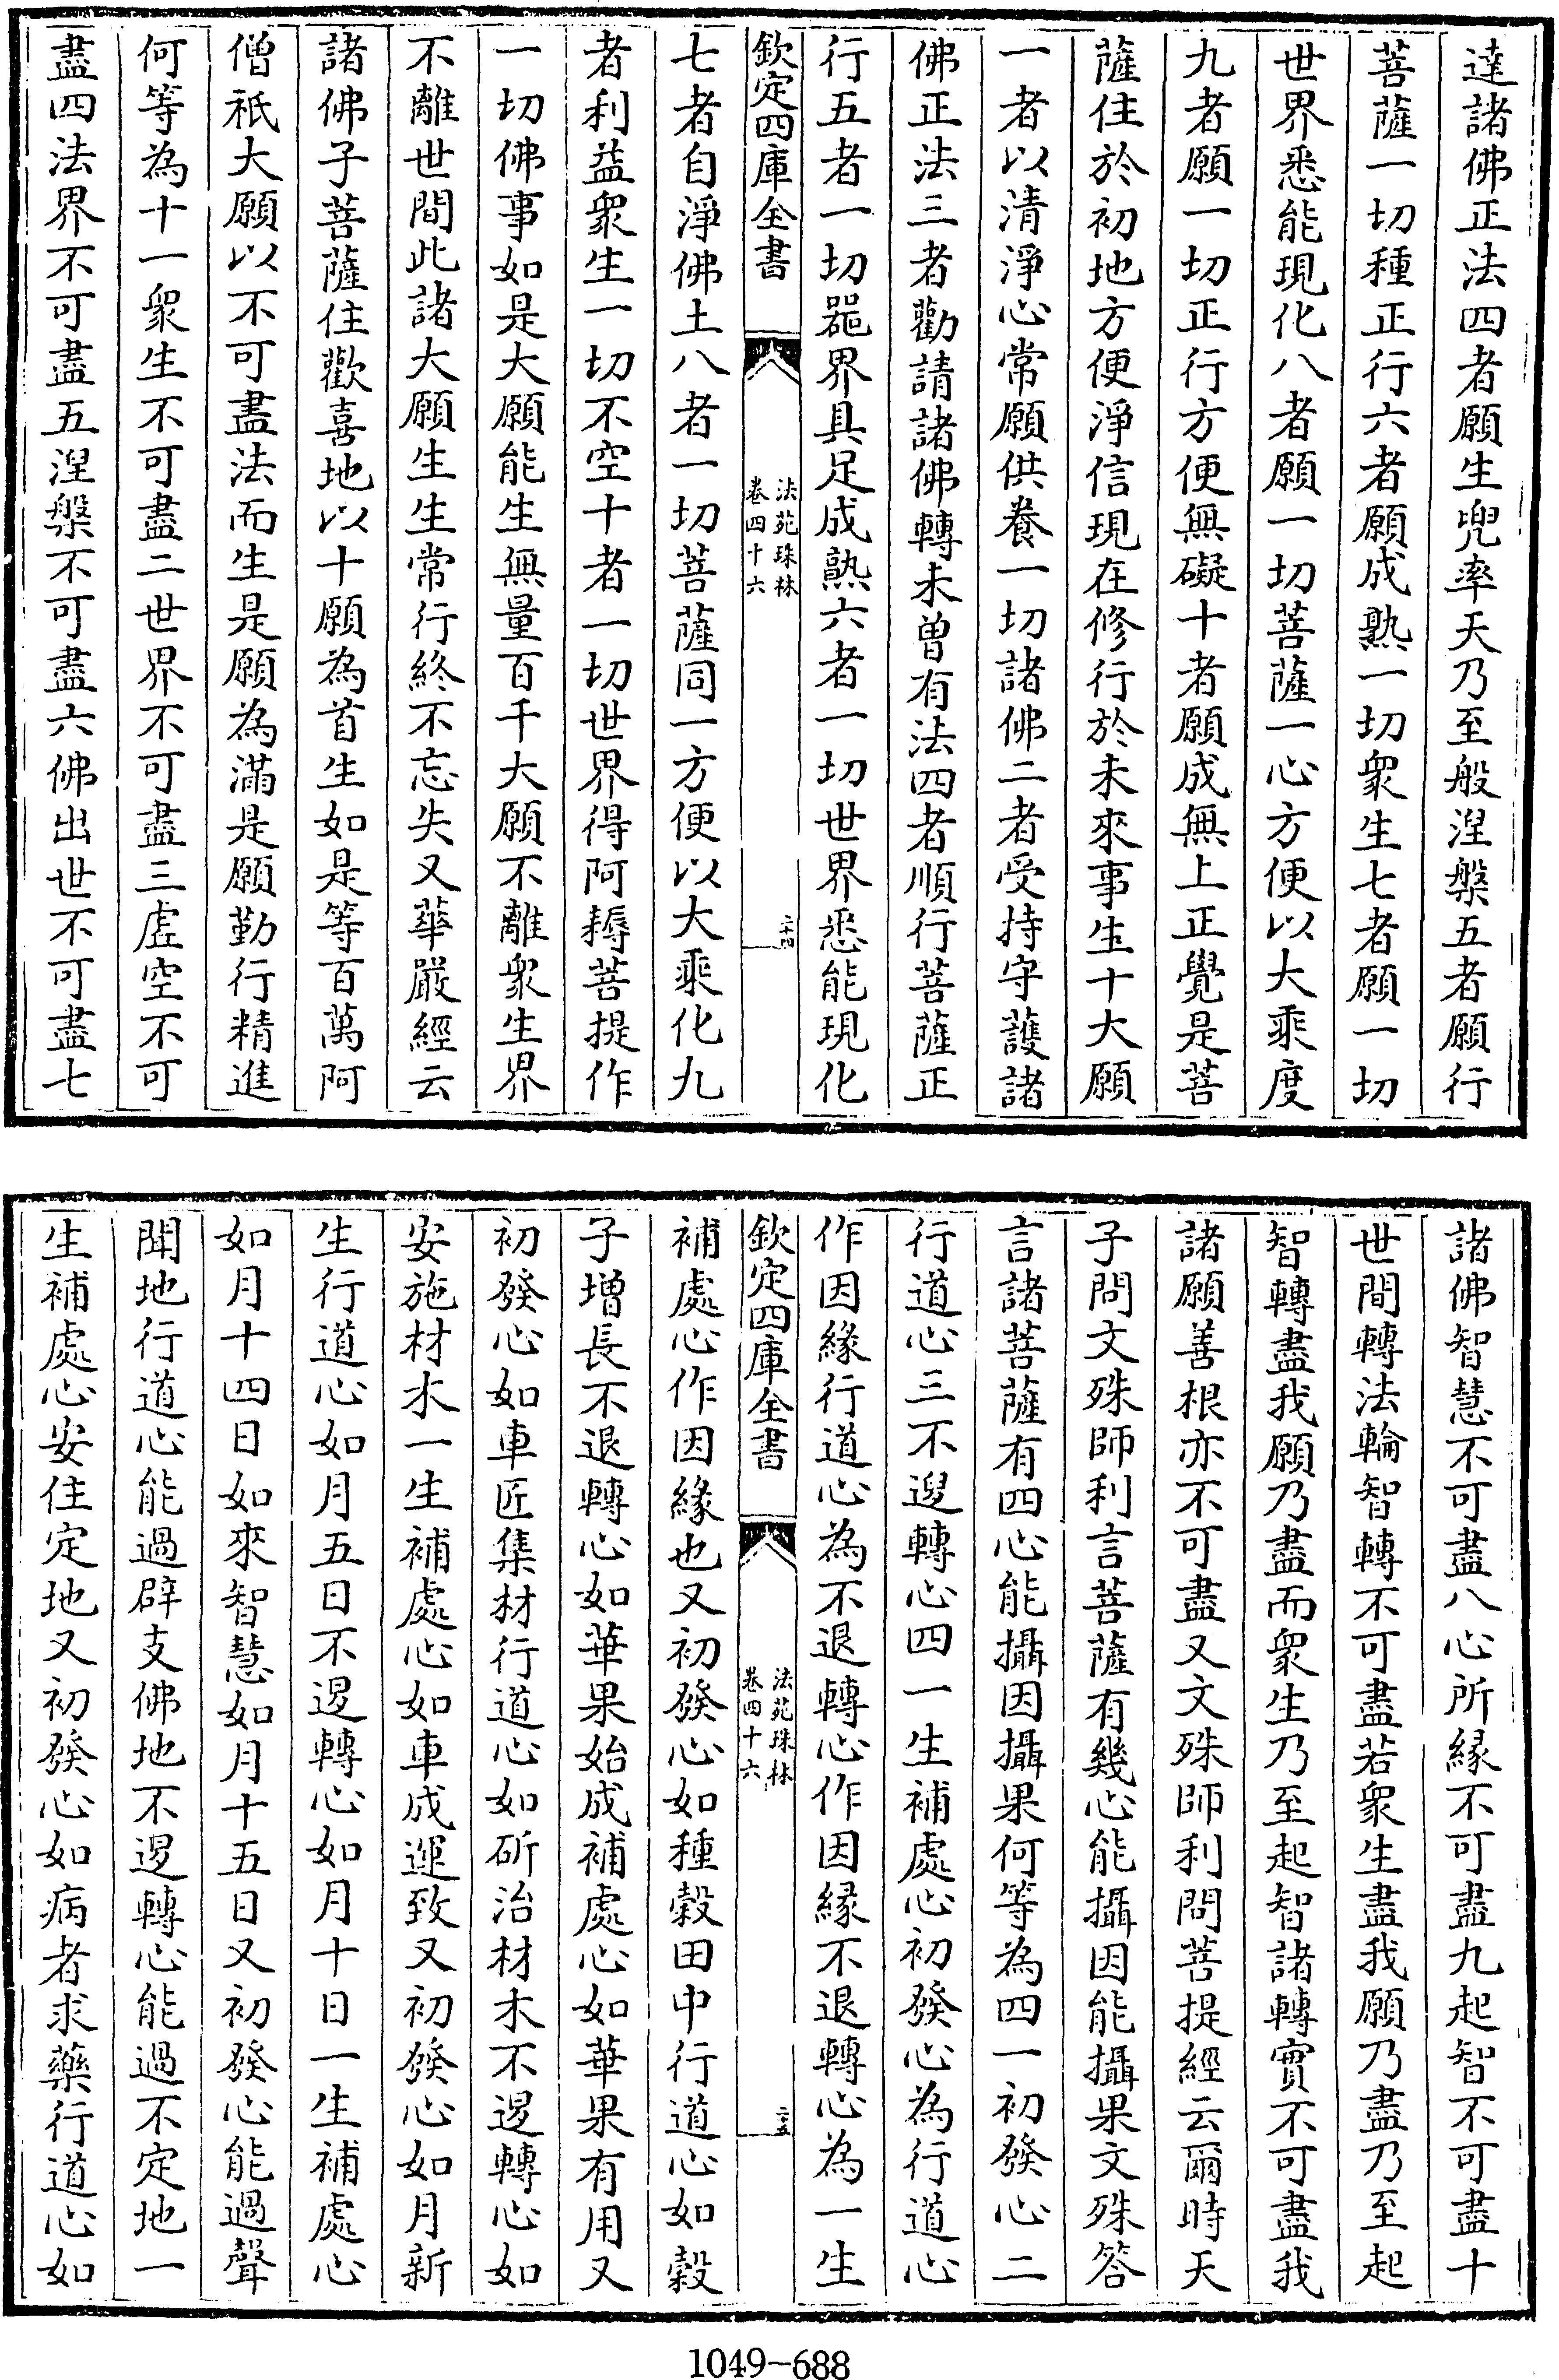 達諸佛正法四者願生兜率天乃至般涅槃五者願行
菩薩一切種正行六者願成熟一切衆生七者願一切
世界悉能現化八者願一切菩薩一心方便以大乘度
九者願一切正行方便無礙十者願成無上正覺是菩
薩住於初地方便淨信現在修行於未來事生十大願
一者以清淨心常願供養一切諸佛二者受持守護諸
佛正法三者勸請諸佛轉未曾有法四者順行菩薩正
行五者一切器界具足成熟六者一切世界悉能現化
欽定四庫全書
法苑珠林
卷四十六
二十四
七者自淨佛土八者一切菩薩同一方便以大乘化九
者利益衆生一切不空十者一切世界得阿耨菩提作
一切佛事如是大願能生無量百千大願不離衆生界
不離世間此諸大願生生常行終不忘失又華嚴經云
諸佛子菩薩住歡喜地以十願為首生如是等百萬阿
僧祇大願以不可盡法而生是願為滿是願勤行精進
何等為十一衆生不可盡二世界不可盡三虛空不可
盡四法界不可盡五涅槃不可盡六佛出世不可盡七
諸佛智慧不可盡八心所緣不可盡九起智不可盡十
世間轉法輪智轉不可盡若衆生盡我願乃盡乃至起
智轉盡我願乃盡而衆生乃至起智諸轉實不可盡我
諸願善根亦不可盡又文殊師利問菩提經云爾時天
子問文殊師利言菩薩有幾心能攝因能攝果文殊答
言諸菩薩有四心能攝因攝果何等為四一初發心二
行道心三不退轉心四一生補處心初發心為行道心
作因緣行道心為不退轉心作因緣不退轉心為一生
欽定四庫全書
法苑珠林
卷四十六
二十五
補處心作因緣也又初發心如種穀田中行道心如穀
子增長不退轉心如華果始成補處心如華果有用又
初發心如車匠集材行道心如斫治材木不退轉心如
安施材木一生補處心如車成運致又初發心如月新
生行道心如月五日不退轉心如月十日一生補處心
如月十四日如來智慧如月十五日又初發心能過聲
聞地行道心能過辟支佛地不退轉心能過不定地一
生補處心安住定地又初發心如病者求藥行道心如
1049-688